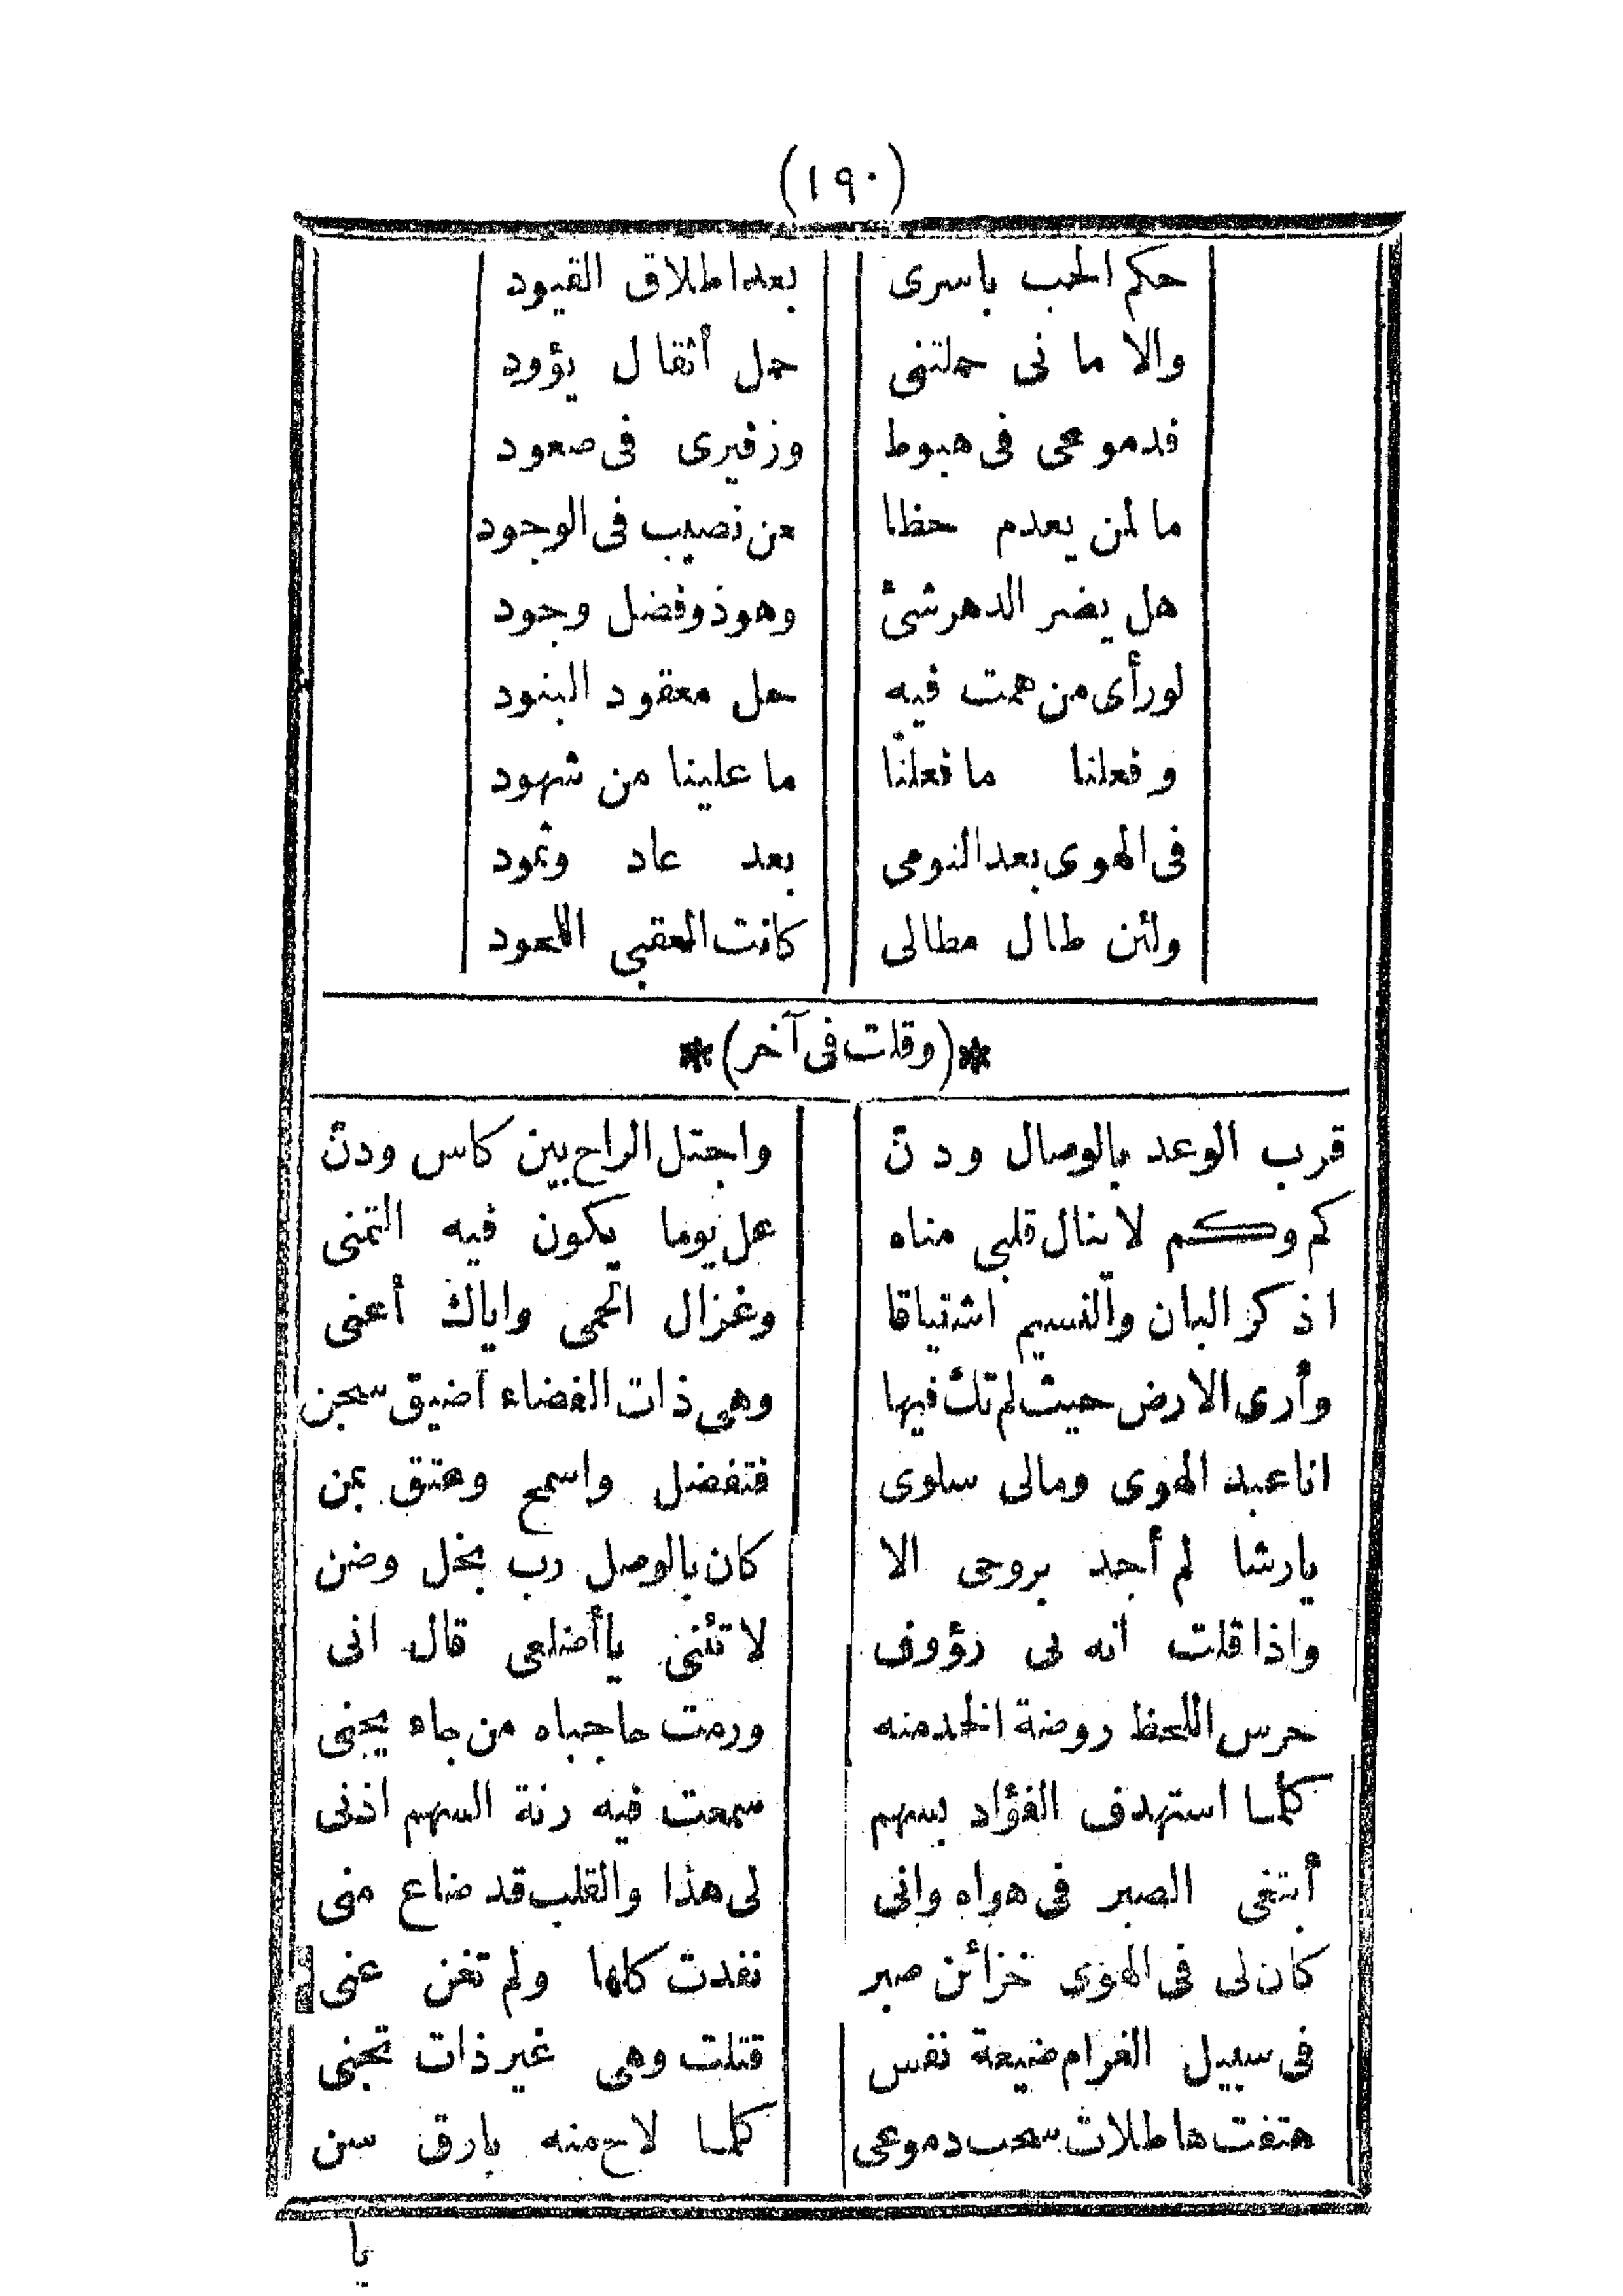 (١٩٠)
حكم الحب باسرى بعد اطلاق القيود
والا ما نى حملتنى حمل أثقال يؤود
فدموعى فى هبوط وزفيرى فى صعود
ما لمن يعدم حظا من نصيب فى الوجود
هل يضر الدهر شئ وهو ذو فضل وجود
لو رأى من همت فيه حل معقود البنود
وفعلنا ما فعلنا ما علينا من شهود
فى الهوى بعد النومى بعد عاد وثمود
ولئن طال مطالى كانت العقبى اللحود
*(وقلت فى آخر)*
قرب الوعد بالوصال ودن واجتل الراح بين كاس ودن
كم وكم لا ينال قلبى مناه عل يوما يكون فيه التمنى
اذكر البان والنسيم اشتياقا وغزال الحمى واياك أعنى
وأرى الارض حيث لم تك فيها وهى ذات الفضاء اضيق سجن
انا عبد الهوى ومالى سلوى فتفضل واسمح وعتق بمن
يا رشا لم أجد بروحى الا كان بالوصل رب بخل وضن
واذا قلت انه بى رؤوف لا تئنى يا أضلعى قال انى
حرس اللحظ روضة الخد منه ورمت حاجباه من جاء يجنى
كلما استهدف الفؤاد بسهم سمعت فيه رنة السهم اذنى
أبتغى الصبر فى هواه وانى لى هذا والقلب قد ضاع منى
كان لى فى الهوى خزائن صبر نفدت كلها ولم تغن عنى
فى سبيل الغرام ضيعة نفس قتلت وهى غير ذات تجنى
هتفت هاطلات سحب دموعى كلما لاح منه بارق سن
يا